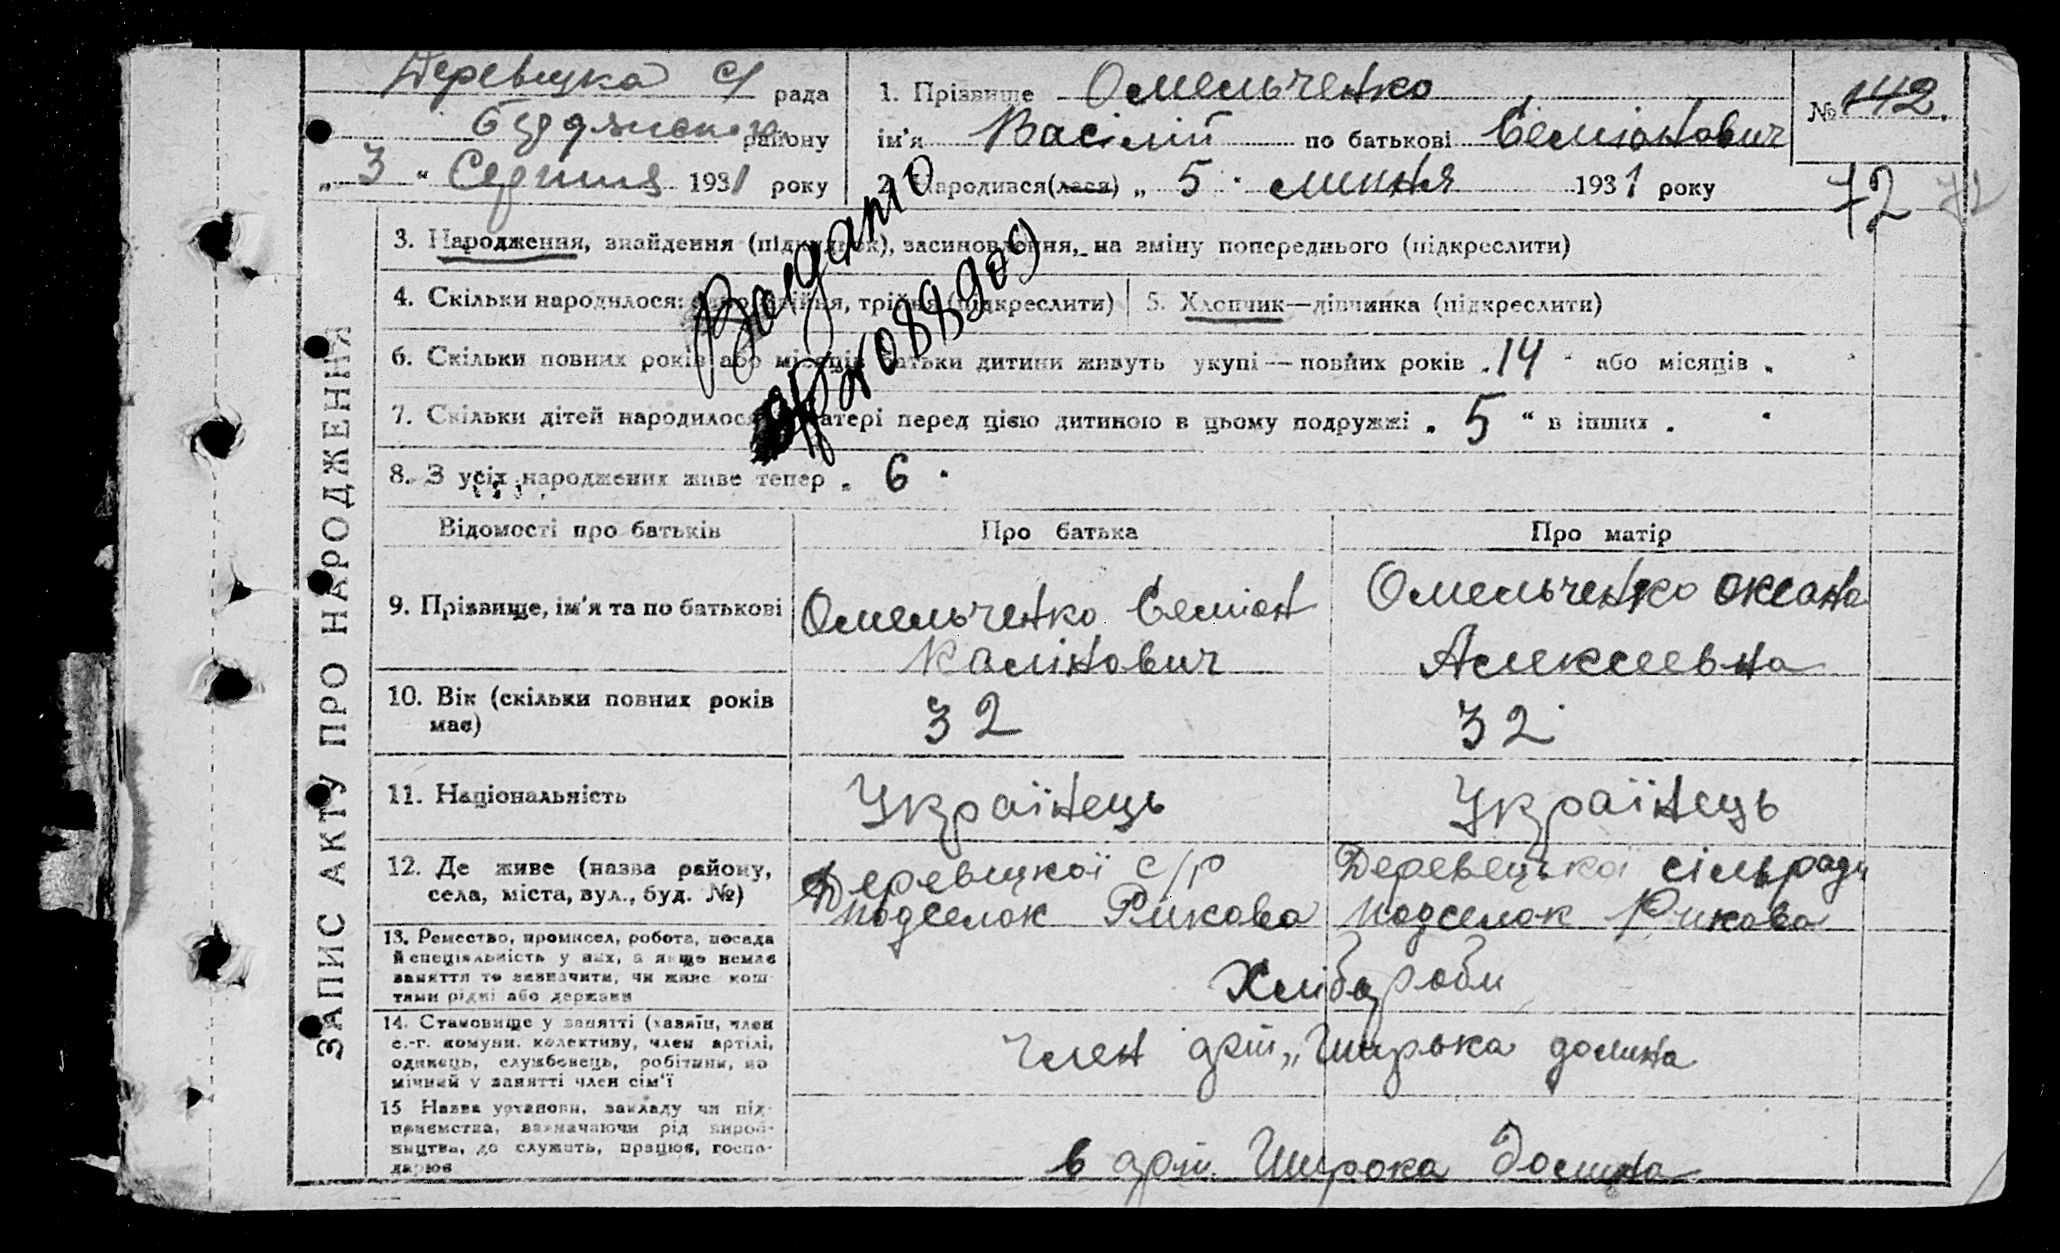 Деревцка с/ рада
района
„ 3 “ Серпня 1931 року
1. Прізвище Омельченко
ім'я Васілій по батькові Семіонович
2. Народився(лася) „ 5 “ липня 1931 року
№ 142.
72 72
3. Народження, знайдення (підкидьок), засиновлення, на зміну попереднього (підкреслити)
4. Скільки народилося: одно, двійня, трійня (підкреслити) 5. Хлопчик—дівчинка (підкреслити)
6. Скільки повних років або місяців батьки дитини живуть укупі — повних років „ 14 “ або місяців „
7. Скільки дітей народилося матері перед цією дитиною в цьому подружжі „ 5 “ в інших „
8. З усіх народжених живе тепер „ 6 “
Видано
ЗАПИС АКТУ ПРО НАРОДЖЕННЯ
Відомості про батьків Про батька Про матір
9. Прізвище, ім'я та по батькові
Омельченко Семіон
Калінович
Омельченко Оксана
Алексеевна
10. Вік (скільки повних років
має)
32 32
11. Національність Українець Українець
12. Де живе (назва району,
села, міста, вул., буд. №)
Деревецкої с/р
подселок Рикова
Деревецької сільради
подселок Рикова
13. Ремество, промисел, робота, посада
й спеціяльність у них, а якщо немає
заняття то зазначити, чи живе кош-
тами рідні або держави
Хлібороби
14. Становище у занятті (хазяїн, член
с.-г. комуни, колективу, член артілі,
одинець, службовець, робітник, по
мічний у занятті член сім'ї
член арт „Широка долина
15 Назва установи, закладу чи під-
приємства, зазначаючи рід вироб-
ництва, де служить, працює, госпо-
дарює
в арт. Широка Долина